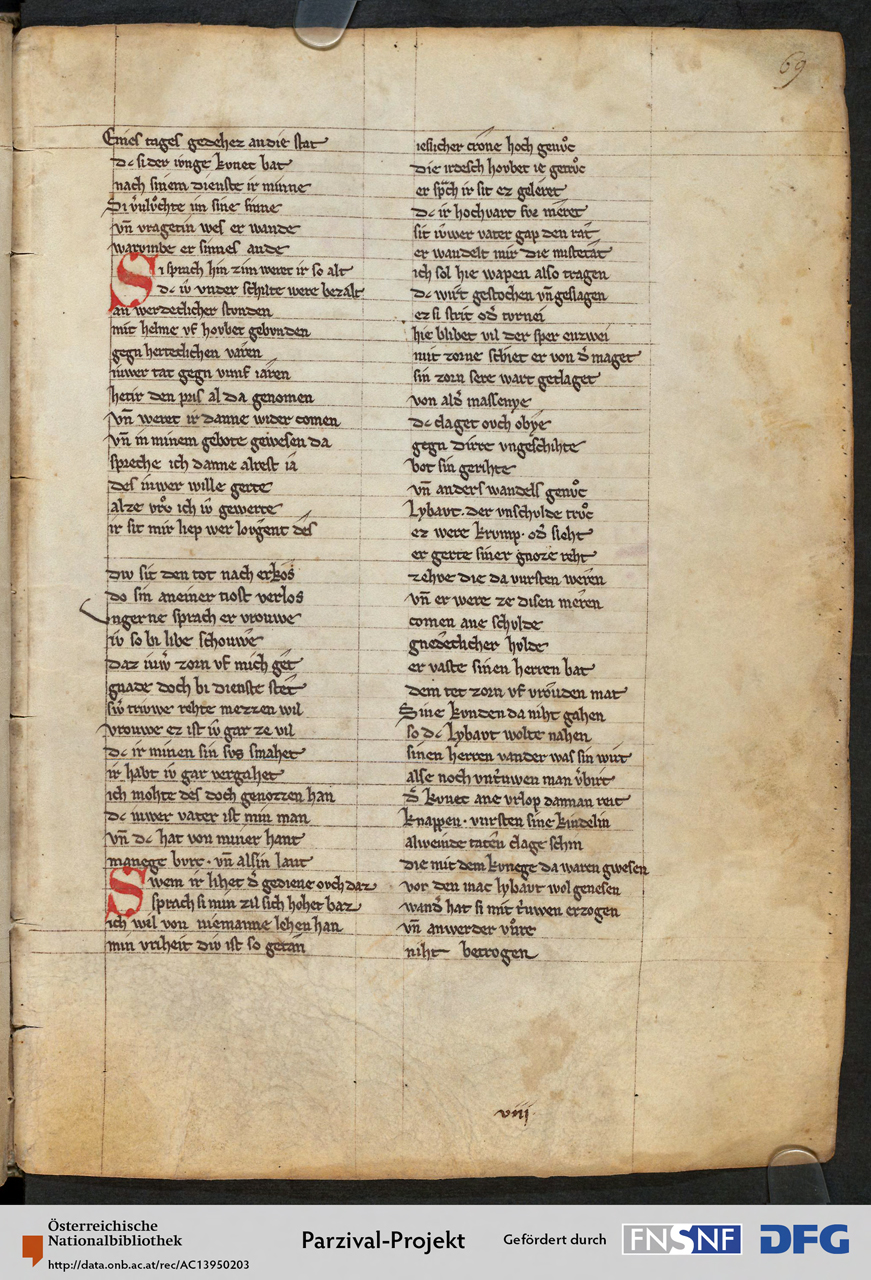 69
Eines tages gedehez an die stat
dc si der ivnge kvnec bat
nach sinem dienste ir minne
Si v̾vlv̊chte im sine sinne
vn̄ vragetin wes er wande
warvmbe er sinnes ande
Si sprach hin zim weret ir so alt
dc iv vnder schilte were bezalt
an werdeclicher stvnden
mit helme vf hovbet gebvnden
gegn herteclichen varen
iuwer tac gegn vunf iâren
hetir den pris al da genomen
vn̄ weret ir danne wider comen
vn̄ in minem gebote gewesen da
spreche ich danne alrest ia
des iuwer wille gerte
alze vrv̊ ich iv gewerte
ir sit mir liep wer lovgent des
div sit den tot nach erkos
do sin an einer tiost verlos
ngerne sprach er vrouwe
iv so bi libe schouwe
daz iuw̄ zorn vf mich get
gnade doch bi dienste stet
sw̄ triwwe rehte mezzen wil
vrouwe ez ist iv gar ze vil
dc ir minen sin svs smahet
ir habt iv gar vergahet
ich mohte des doch genozzen han
dc iuwer vater ist min man
vn̄ dc hat von miner hant
manege bvrc · vn̄ al sin lant
Swem ir lihet d̾ gediene ovch daz
sprach si min zil sich hohet baz
ich wel von niemanne lehen han
min vriheit div ist so getan
ieslicher crone hoch genv̊c
die irdesch hovbet ie getrv̊c
er sp̄ch ir sit ez geleret
dc ir hochvart svs meret
sit iuwer vater gap den rat
er wandelt mir die missetat
ich sol hie wapen also tragen
dc wirt gestochen vn̄ geslagen
ez si strit od̾ tornei
hie blibet vil der sper enzwei
mit zorne schiet er von d̾ maget
sin zorn sere wart geclaget
von al d̾ massenye
dc claget ovch obye
gegn dirre vngeschihte
bot sin gerihte
vn̄ anders wandels genv̊c
Lybavt · der vnschvlde trv̊c
ez were krvmp · od̾ sleht
er gerte siner gnoze reht
zehve die da vursten weren
vn̄ er were ze disen meren
comen ane schvlde
gnedeclicher hvlde
er vaste sinen herren bat
dem tet zorn vf vrôuden mat
Sine kvnden da niht gahen
so dc Lybavt wolte nahen
sinen herren vander was sin wirt
alse noch vntr̾uwen man v̾birt
d̾ kvnec ane vrlop dannan reit
knappen · vursten sine kindelin
al weinde taten clage schin
die mit dem kvnege da waren gwesen
vor den mac lybavt wol genesen
wand̾ hat si mit tr̾uwen erzogen
vn̄ anwerder vv̊re
niht betrogen
viij
Österreichische
Nationalbibliothek
http://data.onb.ac.at/rec/AC13950203
Parzival-Projekt
Gefördert durch
FNSNF
DFG